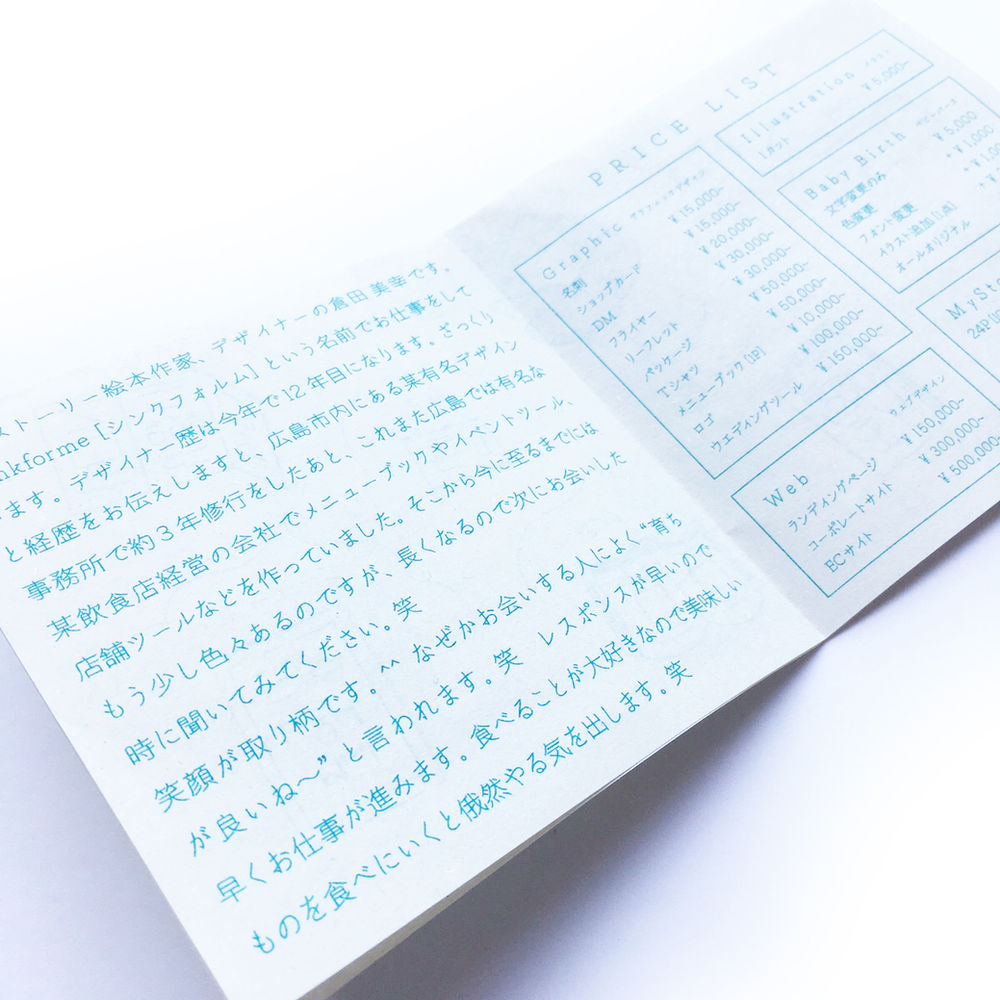 ストーリー絵本作家、デザイナーの倉田 美幸です。
nkforme [シンクフォルム] という名前でお仕事をして
ます。デザイナー歴は今年で12年目になります。ざっくり
と経歴をお伝えしますと、広島市内にある某有名デザイン
事務所で約3年修行をしたあと、これまた広島では有名な
某飲食店経営の会社でメニューブックやイベントツール、
店舗ツールなどを作っていました。そこから今に至るまでには
もう少し色々あるのですが、長くなるので次にお会いした
時に聞いてみてください。笑
笑顔が取り柄です。^^ なぜかお会いする人によく“育ち
が良いね〜”と言われます。笑　レスポンスが早いので
早くお仕事が進みます。食べることが大好きなので美味しい
ものを食べにいくと俄然やる気を出します。笑
PRICE LIST
Graphic グラフィックデザイン
名刺 ¥15,000~
ショップカード ¥15,000~
DM ¥20,000~
フライヤー ¥30,000~
リーフレット ¥30,000~
パッケージ ¥50,000~
Tシャツ ¥50,000~
メニューブック [1P] ¥10,000~
ロゴ ¥100,000~
ウエディングツール ¥150,000~
Illustration イラスト
1カット ¥5,000~
Baby Birth ベビーバース
文字変更のみ ¥5,000
色変更 +¥1,000
フォント変更 +¥1,00
イラスト追加 [1点]
オールオリジナル
MySto
24P
Web ウェブデザイン
ランディングページ ¥150,000~
コーポレートサイト ¥300,000~
ECサイト ¥500,000~